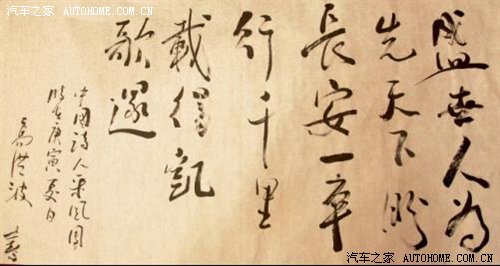 汽车之家 AUTOHOME.COM.CN
盛世人为
先天下盼
長安一车
行千里
載得凱
歌還
中國詩人采风团
时在庚寅夏日
高洪波
汽车之家
AUTOHOME.COM.CN